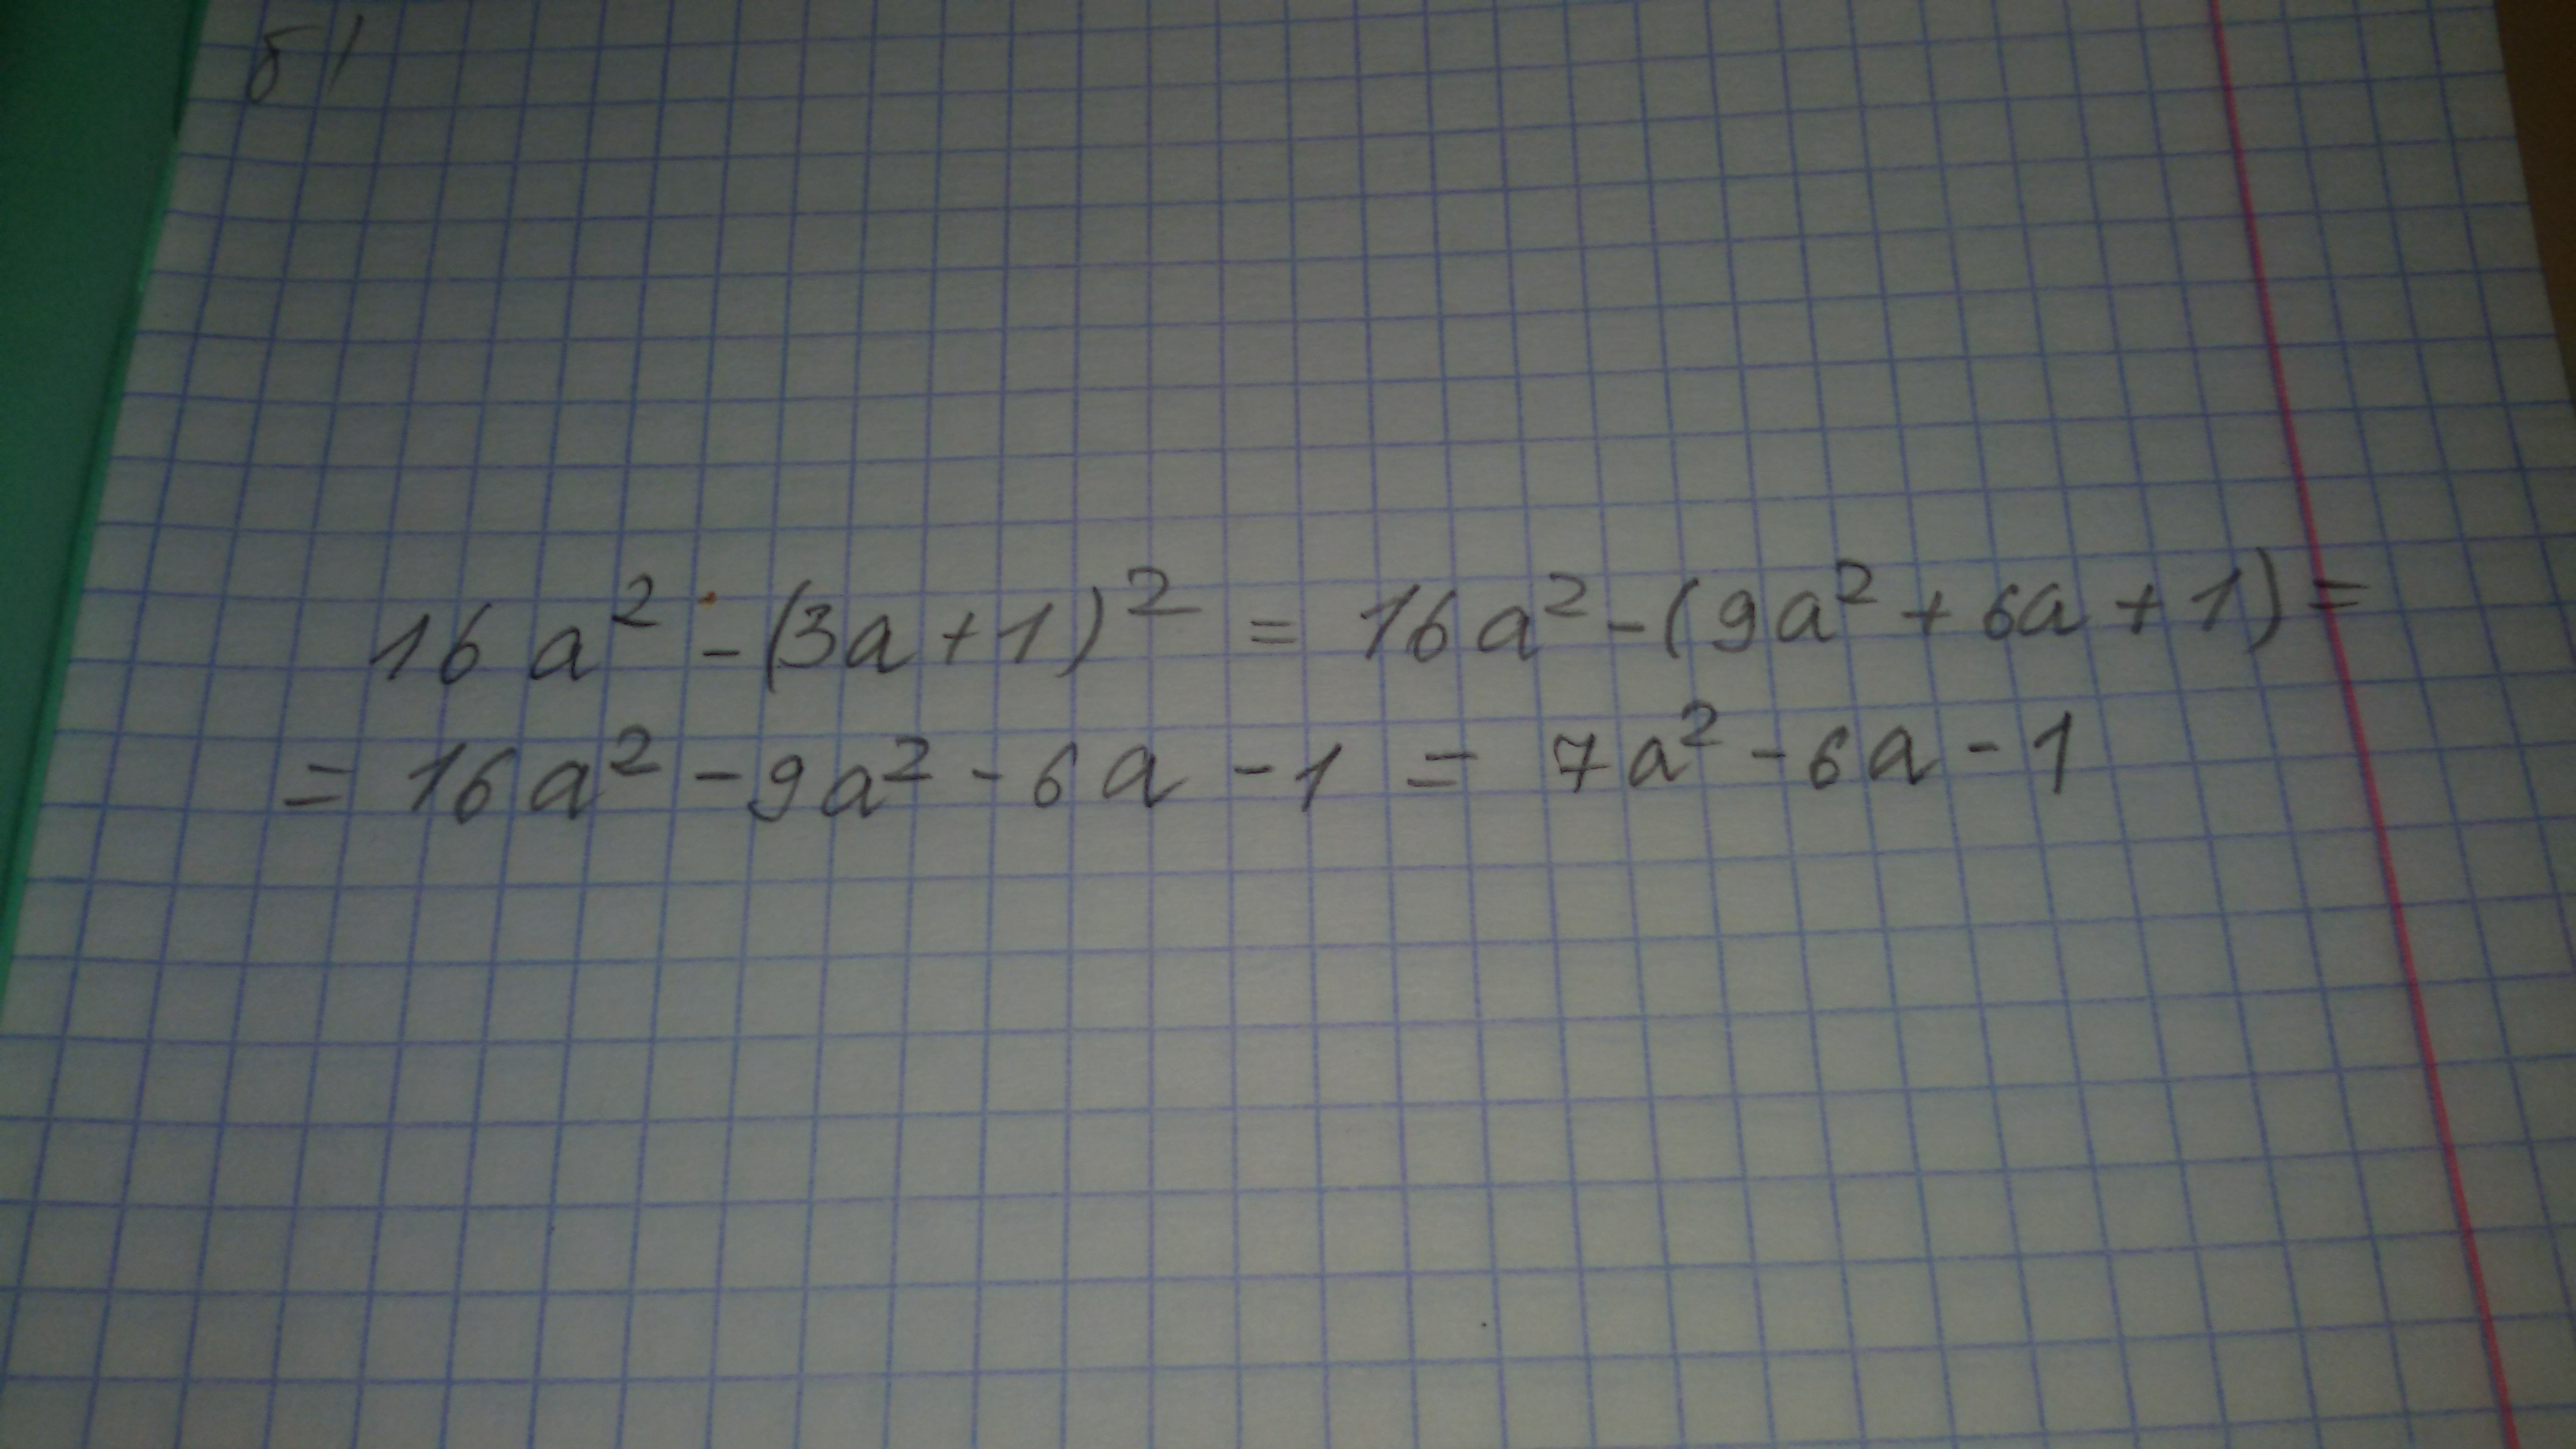 б)
16a² - (3a + 1)² = 16a² - (9a² + 6a + 1) =
= 16a² - 9a² - 6a - 1 = 7a² - 6a - 1